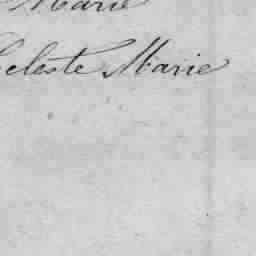 Marie
Celeste Marie